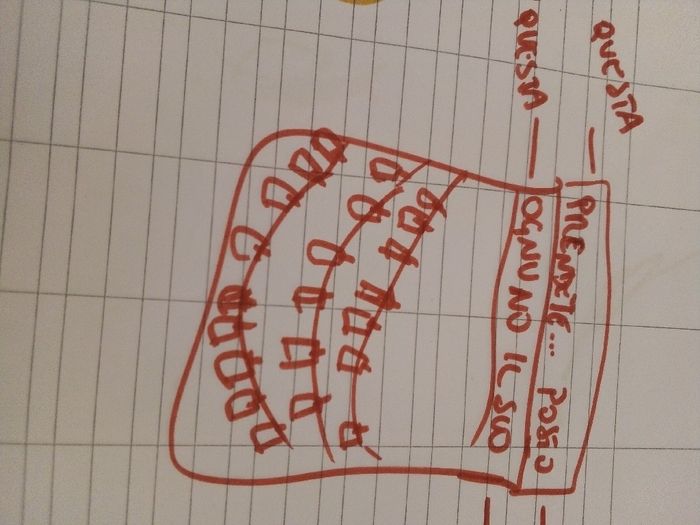 QUESTA
PRENDETE... POSTO
QUESTA
OGNUNO IL SUO